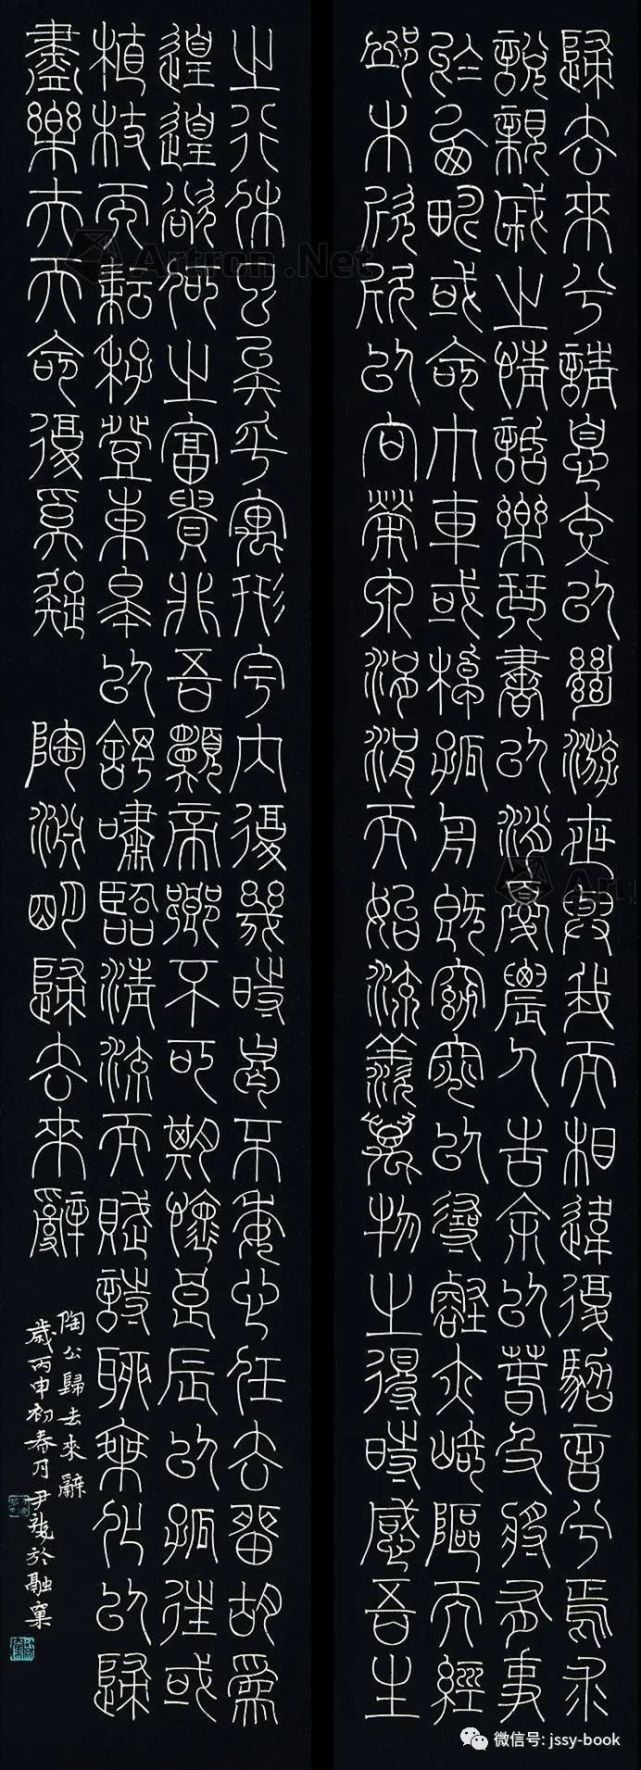 歸去來兮請息交以絕游世與我而相違復駕言兮焉求
說親戚之情話樂琴書以消憂農人告余以萅及將有事
於西疇或命巾車或棹孤舟既窈窕以尋壑亦崎嶇而經
邱木欣欣以向榮泉涓涓而始流羨萬物之得時感吾生
之行休已矣乎寓形宇內復幾時曷不委心任去留胡爲
遑遑欲何之富貴非吾願帝鄉不可期懷良辰以孤往或
植杖而耘耔登東皋以舒嘯臨清流而賦詩聊乘化以歸
盡樂夫天命復奚疑 陶淵明歸去來辭
陶公歸去來辭
歲丙申初春月尹於融窠
Artron.Net
微信号: jssy-book